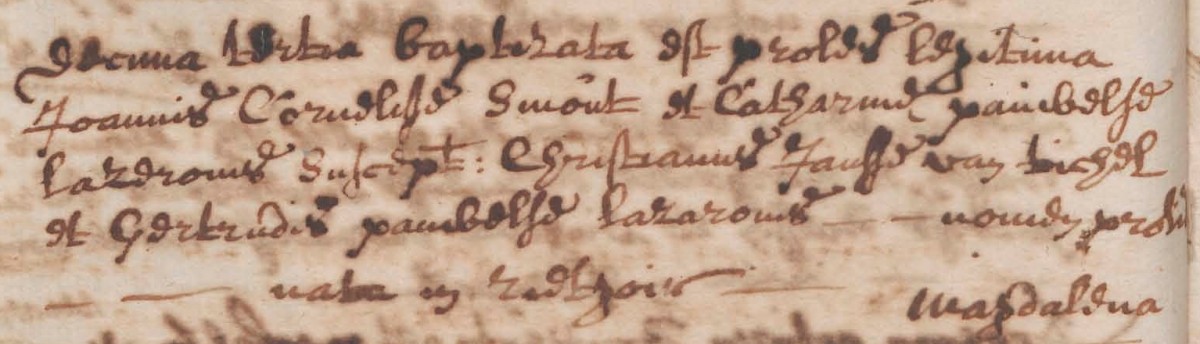 decima tertia baptizata est proles legitima
Joannis Cornelisse Smout et Catharine pauwelse
lazeronis Suscept: Christianus Jansse van tichel
et Gertrudis pauwelse lazaronis — — nomen prolis
— — nata in —
Magdalena